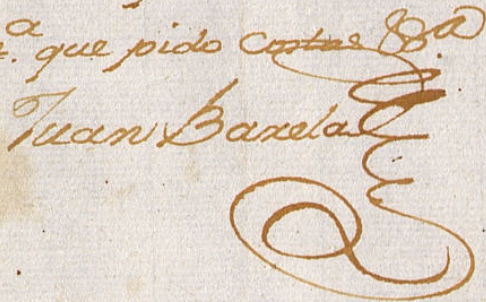 a que pido costas &a
Juan Barela